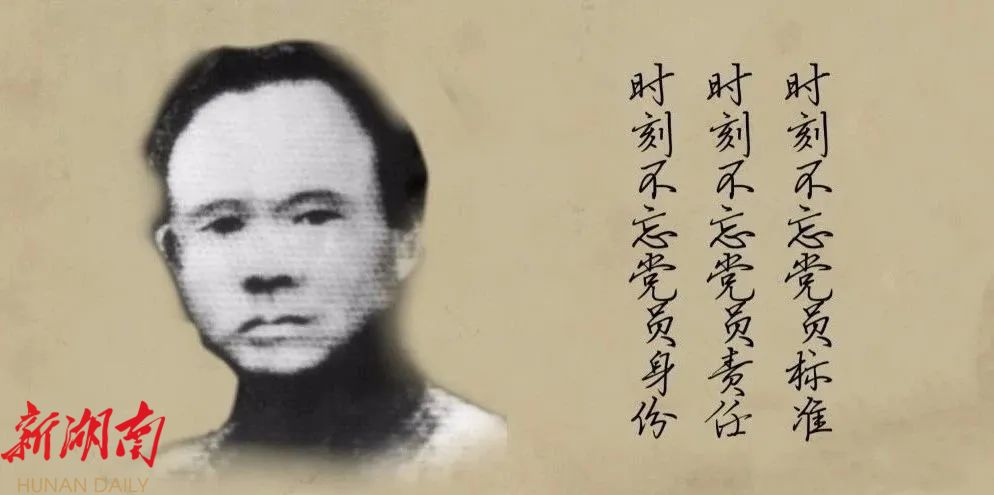 时刻不忘党员标准
时刻不忘党员责任
时刻不忘党员身份
新湖南
HUNAN DAILY